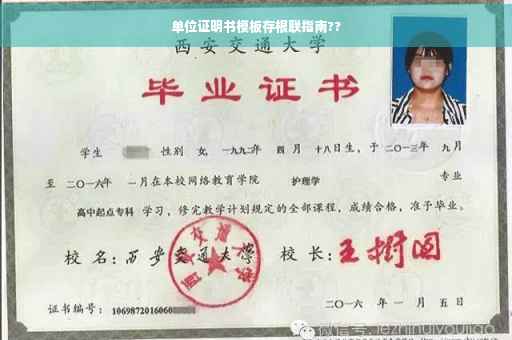 单位证明书模板存根联指南??
西安交通大学
毕业证书
学生 性别 女, 一九九二年 四月 十八日生, 于 二〇一三年 九月
至 二〇一六年 一月在本校网络教育学院 护理学 专业
高中起点专科 学习, 修完教学计划规定的全部课程, 成绩合格, 准予毕业。
校名: 西安交通大学 校长: 王树国
西安交通大学
证书编号: 1069872016060
二〇一六 年 一 月 五 日
微信号: jiezhihuiyoujiao